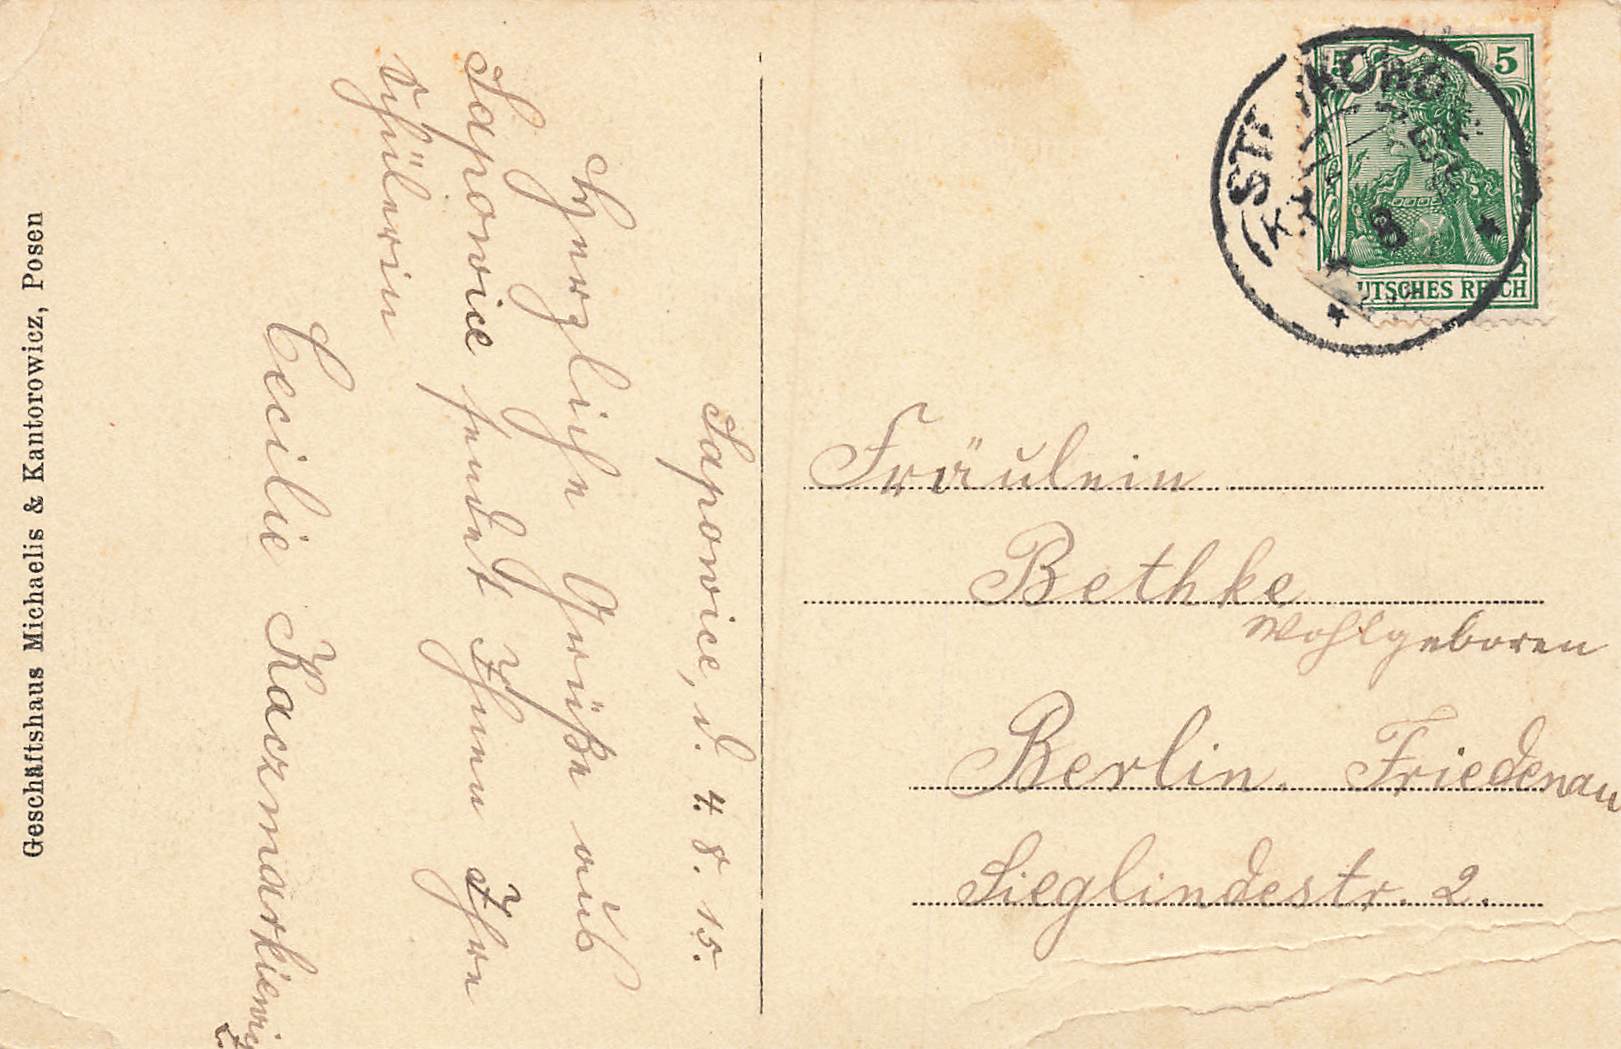 Sapowice, d. 4. 8. 15.
Herzliche Grüße aus
Sapowice sendet Ihnen Ihre
Schülerin
Cecilie Kaczmarkiewicz
Geschäftshaus Michaelis & Kantorowicz, Posen
5 5
DEUTSCHES REICH
8
Fräulein
Bethke
Wohlgeboren
Berlin. Friedenau
Sieglindestr. 2.